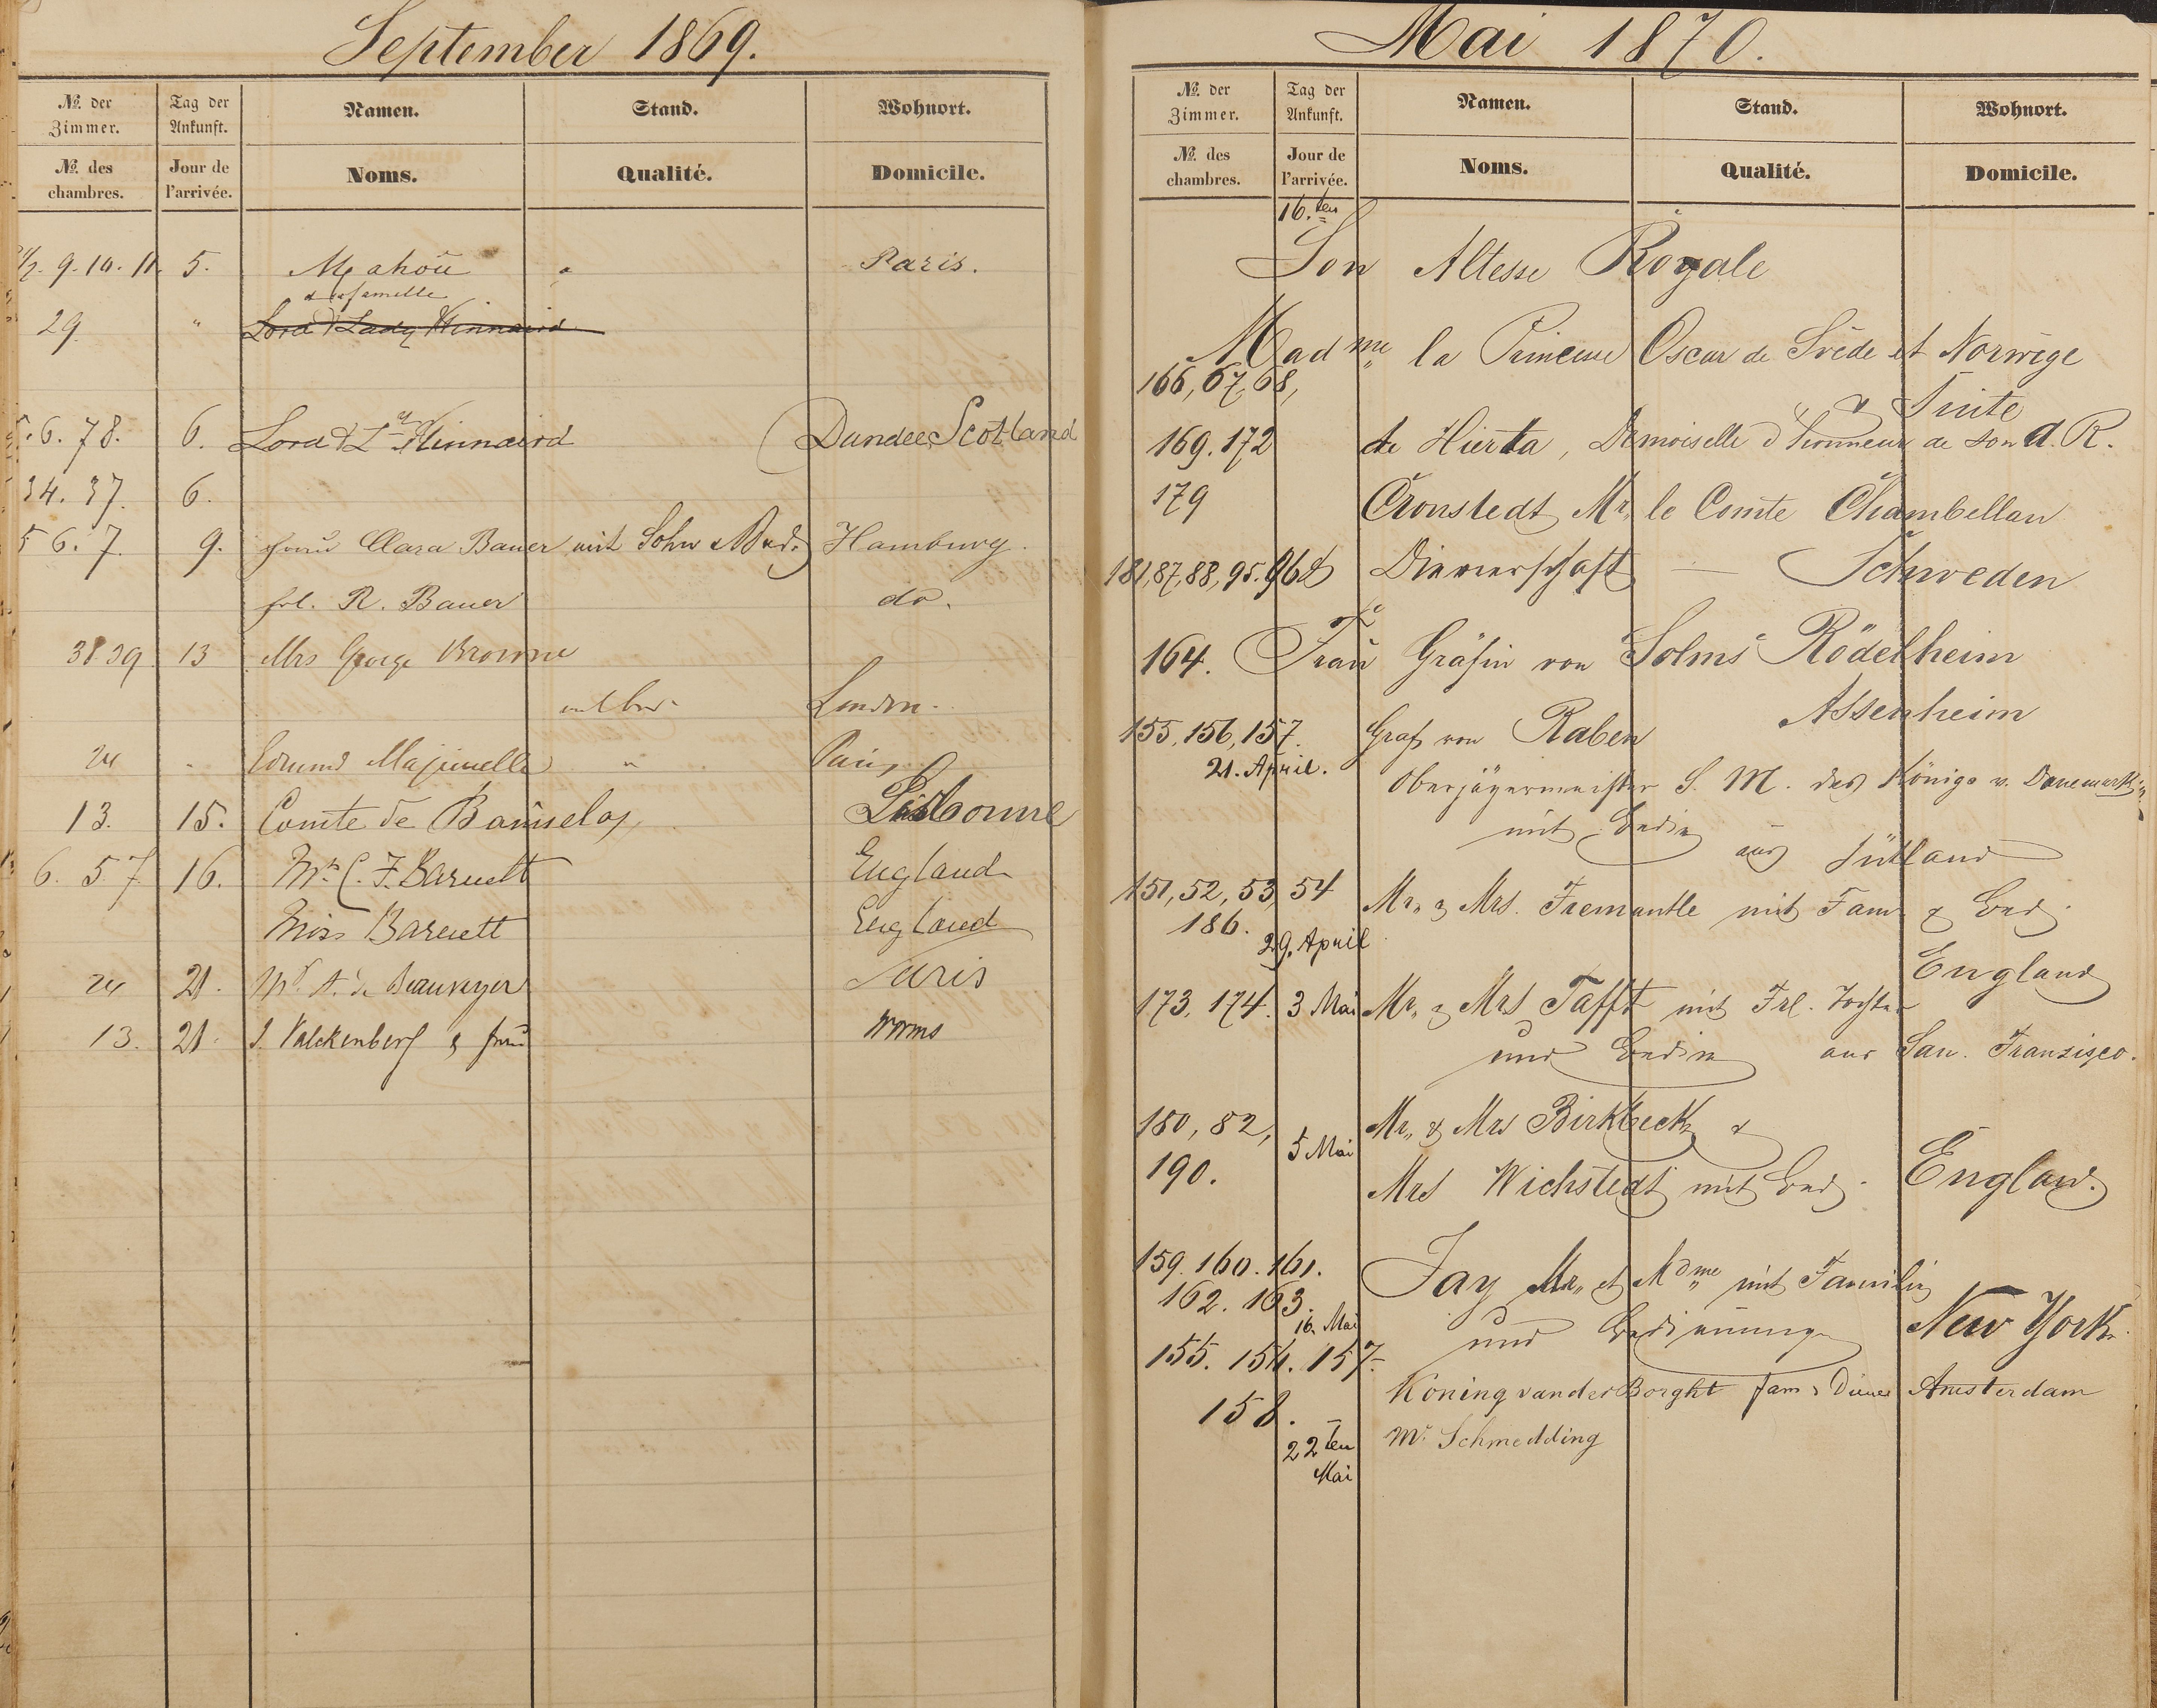 September 1869.
№. der Zimmer. Tag der Ankunft. Namen. Stand. Wohnort.
№. des chambres. Jour de l'arrivée. Noms. Qualité. Domicile.
9. 10. 11. 5. Mahou " Paris.
& sa famille
29. " Lord & Lady Kinnaird
6. 78. 6. Lord & Ly Kinnaird Dundee Scotland
34. 37. 6.
5 6. 7. 9. Frau Clara Bauer mit Sohn & Bed. Hamburg.
frl. R. Bauer do.
38 39. 13 Mrs George Browne
London.
24 Edmund Paris
13. 15. Comte de Lisbonne
6. 57. 16. Mr. C. F. Barnett England
Miss Barnett England
24 21. Mr. A. de Beauvoyer Paris
13. 21. J. Valckenberg & frau Worms
Mai 1870.
№. der Zimmer. Tag der Ankunft. Namen. Stand. Wohnort.
№. des chambres. Jour de l'arrivée. Noms. Qualité. Domicile.
16.ten
Son Altesse Royale
Madme la Princesse Oscar de Svède et Norwège
166, 67, 68, & Suite
169. 172 de Hierta, Demoiselle d'honneur de son A. R.
179 Cronstedt Mr. le Comte Chambellan
181, 87, 88, 95. 96 & Dienerschaft — Schweden
164. Frau Gräfin von Solms Rödelheim
Assenheim
155, 156, 157. Graf von Raben
21. April. Oberjägermeister S. M. des Königs v. Danemark
mit Bedin aus Jütland
151, 52, 53, 54 Mr. & Mrs. Fremantle mit Fam & Bed.
186. 29. April
England
173, 174. 3 Mai Mr. & Mrs Tafft mit Frl. Tochter
und Bedin aus San. Franzisco.
180, 82, Mr. & Mrs Birkbeck &
5 Mai
190. Mrs Wichstedt mit Bed. England.
159. 160. 161. Jay Mr. et Mdme mit Familie
162. 163. 16. Mai und Bedienung New York.
155. 154. 157.
Koning vander Borght fam & Diener Amsterdam
158. Mr. Schmedding
22ten
Mai